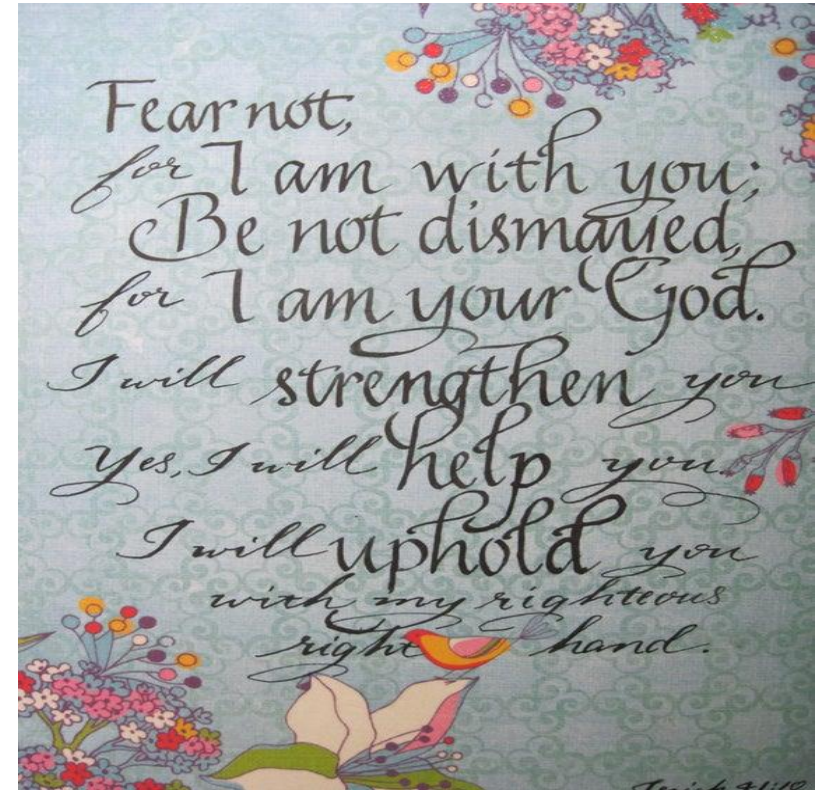 Fear not,
for I am with you;
Be not dismayed,
for I am your God.
I will strengthen you
Yes, I will help you.
I will uphold you
with my righteous
right hand.